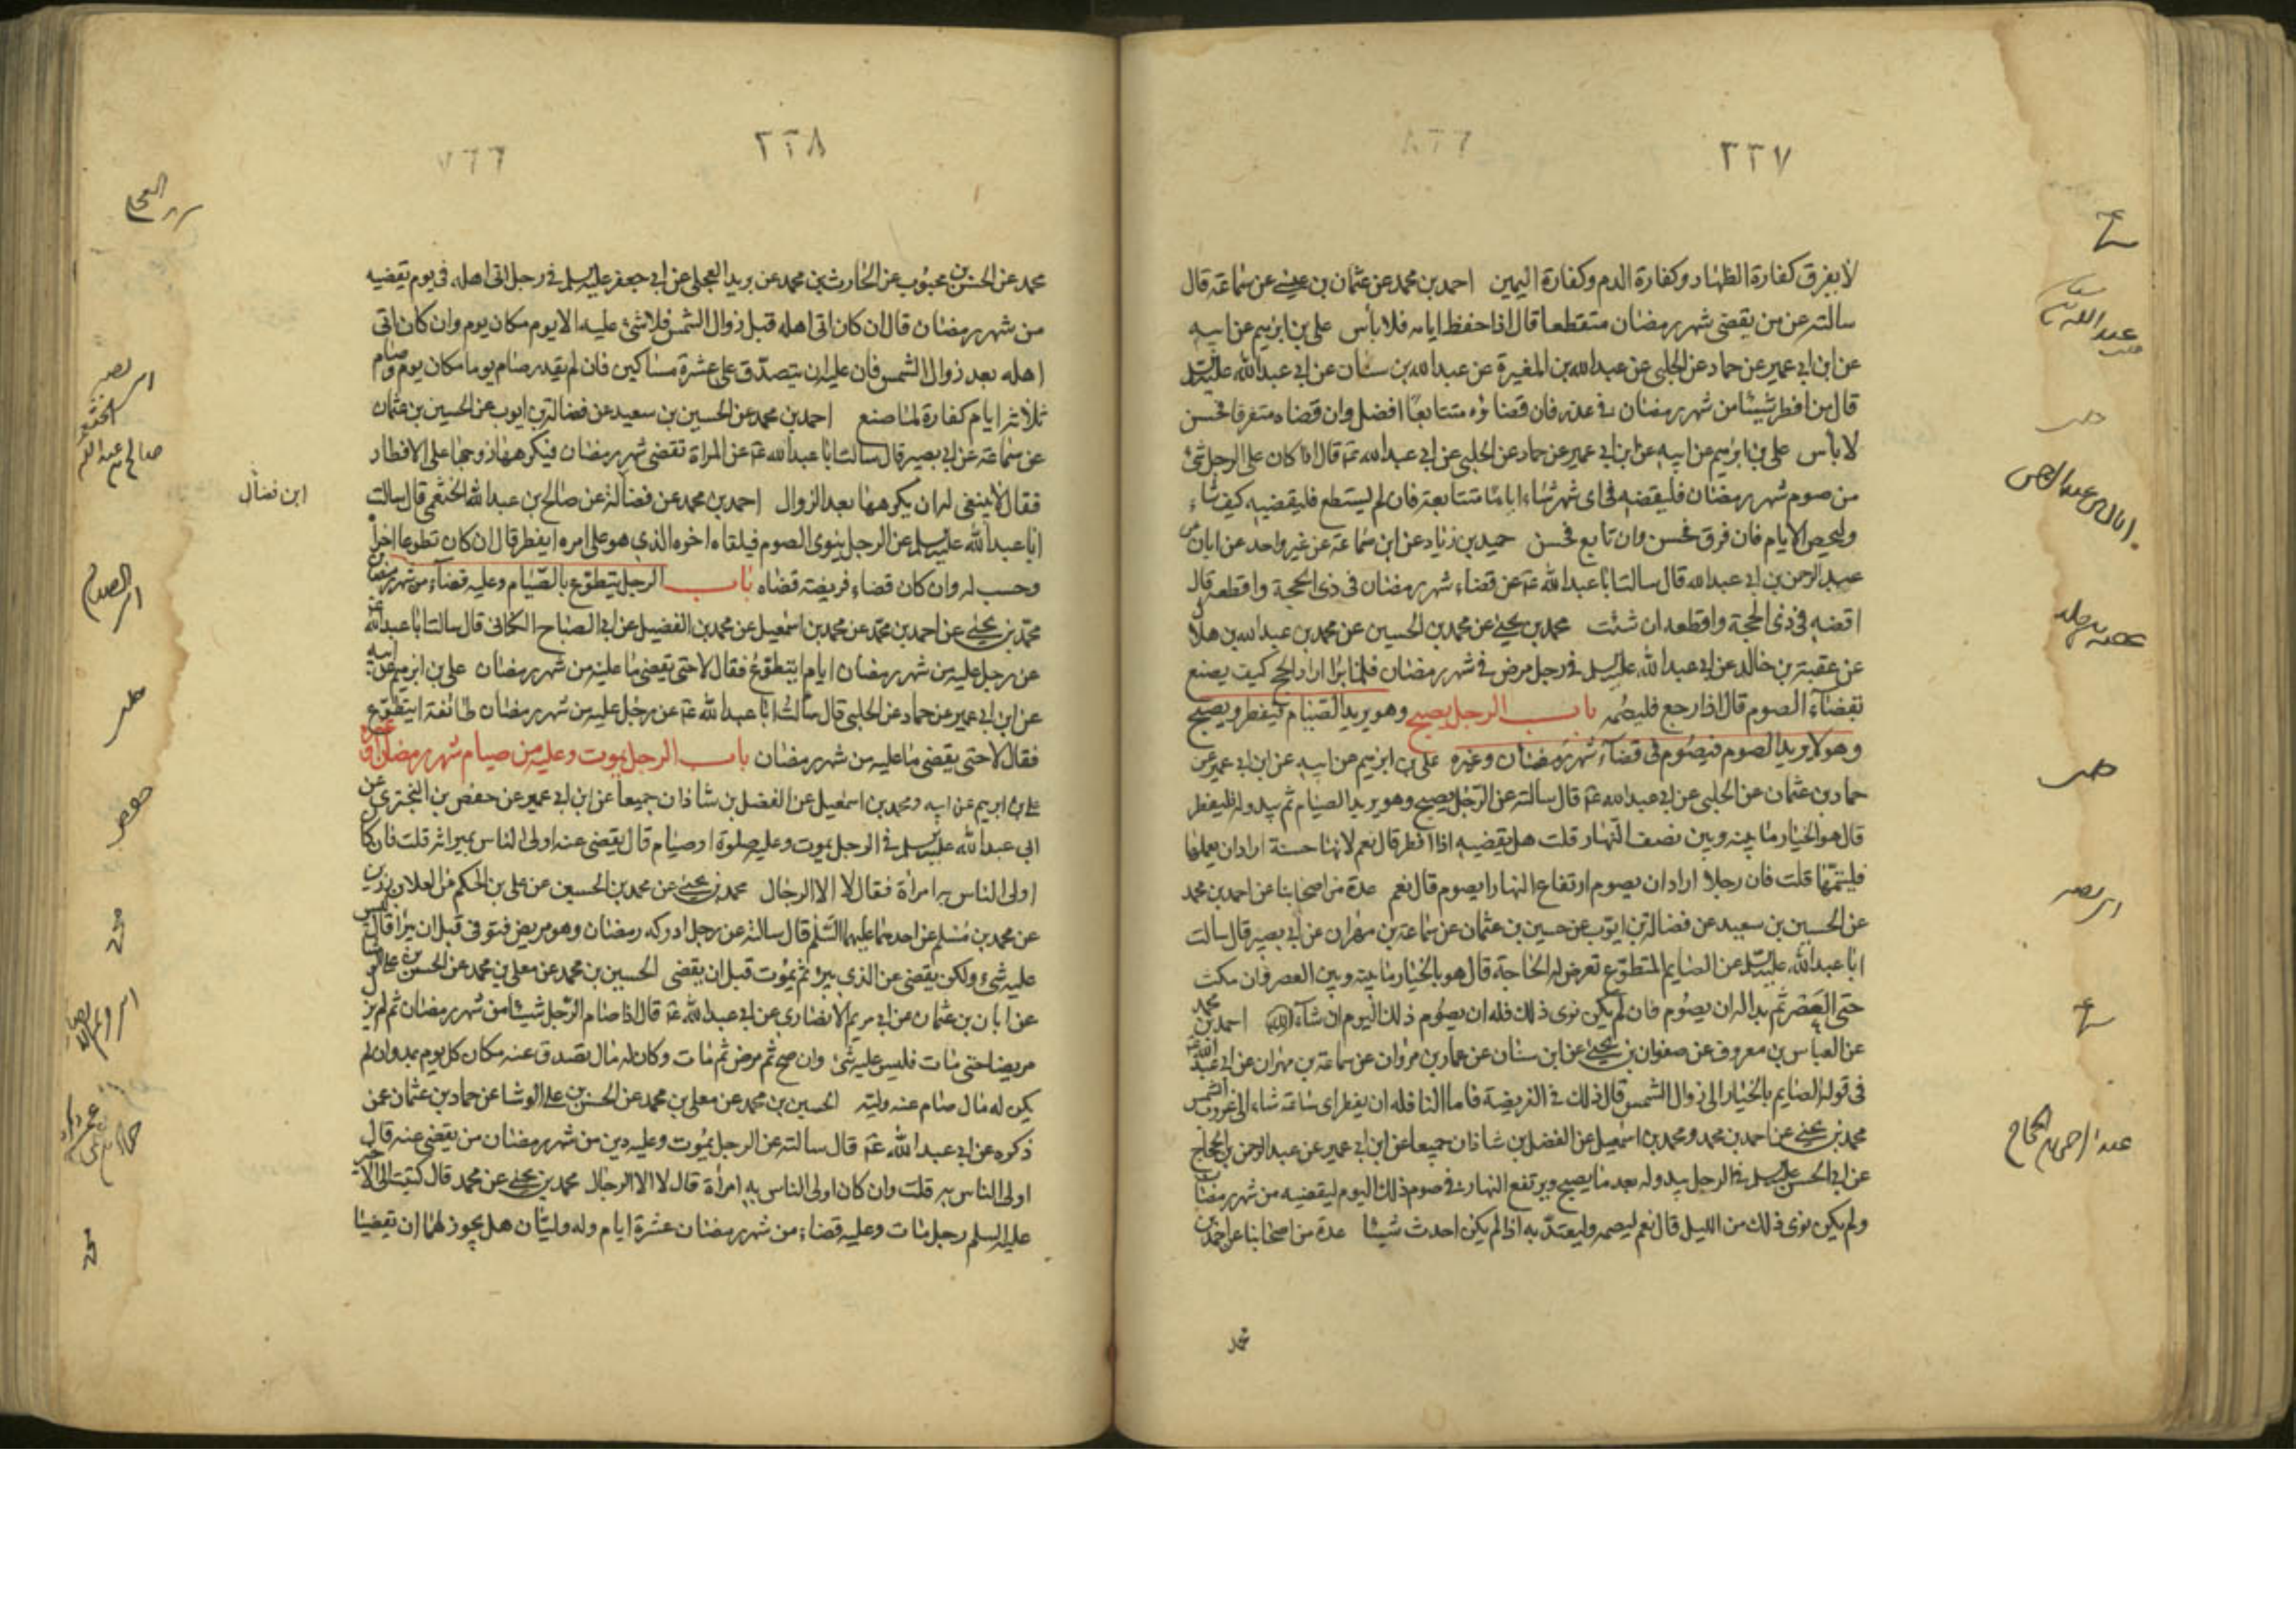 ٢٢٧
لا يفرق كفارة الظهار وكفارة الدم وكفارة اليمين احمد بن محمد عن عثمان بن عيسى عن سماعة قال
سالته عن من يقضى شهر رمضان متقطعا قال اذا حفظ ايامه فلا باس على بن ابرهيم عن ابيه
عن ابن ابى عمير عن حماد عن الحلبى عن عبد الله بن المغيرة عن عبد الله بن سنان عن ابى عبد الله عليه السلم
قال من افطر شيئا من شهر رمضان فى عذر فان قضاؤه متتابعا افضل وان قضاه متفرقا فحسن
لا بأس على بن ابرهيم عن ابيه عن ابن ابى عمير عن حماد عن الحلبى عن ابى عبد الله عم قال اذا كان على الرجل شئ
من صوم شهر رمضان فليقضه فى اى شهر شاء اياما متتابعة فان لم يستطع فليقضيه كيف شاء
وليحص الايام فان فرق فحسن وان تابع فحسن حميد بن زياد عن ابن سماعة عن غير واحد عن ابان عن
عبد الرحمن بن ابى عبد الله قال سالت ابا عبد الله عم عن قضاء شهر رمضان فى ذى الحجة واقطعه قال
اقضه فى ذى الحجة واقطعه ان شئت محمد بن يحيى عن محمد بن الحسين عن محمد بن عبد الله بن هلال
عن عقبة بن خالد عن ابى عبد الله عليه السلم فى رجل مرض فى شهر رمضان فلما برا اراد الحج كيف يصنع
بقضاء الصوم قال اذا رجع فليصمه باب الرجل يصبح وهو يريد الصيام فيفطر ويصبح
وهو لا يريد الصوم فيصوم فى قضاء شهر رمضان وغيره على بن ابرهيم عن ابيه عن ابن ابى عمير عن
حماد بن عثمان عن الحلبى عن ابى عبد الله عم قال سالته عن الرجل يصبح وهو يريد الصيام ثم يبدو له فيفطر
قال هو بالخيار ما بينه وبين نصف النهار قلت هل يقضيه اذا افطر قال نعم لانها حسنة اراد ان يعملها
فليتمها قلت فان رجلا اراد ان يصوم ارتفاع النهار ايصوم قال نعم عدة من اصحابنا عن احمد بن محمد
عن الحسين بن سعيد عن فضالة بن ايوب عن حسين بن عثمان عن سماعة بن مهران عن ابى بصير قال سالت
ابا عبد الله عليه السلم عن الصايم المتطوع تعرض له الحاجة قال هو بالخيار ما بينه وبين العصر فان مكث
حتى العصر ثم بدا له ان يصوم فان لم يكن نوى ذلك فله ان يصوم ذلك اليوم ان شآء الله احمد بن محمد
عن العباس بن معروف عن صفوان بن يحيى عن ابن سنان عن عمار بن مروان عن سماعة بن مهران عن ابى عبد الله عم
فى قوله الصايم بالخيار الى زوال الشمس قال ذلك فى الفريضة فاما النافله ان يفطر اى ساعة شاء الى غروب الشمس
محمد بن يحيى عن احمد بن محمد ومحمد بن اسمعيل عن الفضل بن شاذان جميعا عن ابن ابى عمير عن عبد الرحمن بن الحجاج
عن ابى الحسن عليه السلم فى الرجل يبدو له بعد ما يصبح ويرتفع النهار فى صوم ذلك اليوم ليقضيه من شهر رمضان
ولم يكن نوى ذلك من الليل قال نعم ليصمه وليعتد به اذا لم يكن احدث شيئا عدة من اصحابنا عن احمد بن
محمد
٢٢٨
محمد عن الحسن بن محبوب عن الحارث بن محمد عن بريد العجلى عن ابى جعفر عليه السلم فى رجل اتى اهله فى يوم يقضيه
من شهر رمضان قال ان كان اتى اهله قبل زوال الشمس فلا شئ عليه الا يوم مكان يوم وان كان اتى
اهله بعد زوال الشمس فان عليه ان يتصدق على عشرة مساكين فان لم يقدر صام يوما مكان يوم وصام
ثلاثة ايام كفارة لما صنع احمد بن محمد عن الحسين بن سعيد عن فضالة بن ايوب عن الحسين بن عثمان
عن سماعة عن ابى بصير قال سالت ابا عبد الله عم عن المراة تقضى شهر رمضان فيكرهها زوجها على الافطار
فقال لا ينبغى له ان يكرهها بعد الزوال احمد بن محمد عن فضالة عن صالح بن عبد الله الخثعمى قال سالت
ابا عبد الله عليه السلم عن الرجل ينوى الصوم فيلقاه اخوه الذى هو على امره ايفطر قال ان كان تطوعا اجزأه
وحسب له وان كان قضاء فريضة قضاه باب الرجل يتطوع بالصيام وعليه قضاء من شهر رمضان
محمد بن يحيى عن احمد بن محمد عن محمد بن اسمعيل عن محمد بن الفضيل عن ابى الصباح الكنانى قال سالت ابا عبد الله عم
عن رجل عليه من شهر رمضان ايام ايتطوع فقال لا حتى يقضى ما عليه من شهر رمضان على بن ابرهيم عن ابيه
عن ابن ابى عمير عن حماد عن الحلبى قال سالت ابا عبد الله عم عن رجل عليه من شهر رمضان طائفة ايتطوع
فقال لا حتى يقضى ما عليه من شهر رمضان باب الرجل يموت وعليه من صيام شهر رمضان او غيره
على بن ابرهيم عن ابيه ومحمد بن اسمعيل عن الفضل بن شاذان جميعا عن ابن ابى عمير عن حفص بن البخترى عن
ابى عبد الله عليه السلم فى الرجل يموت وعليه صلوة او صيام قال يقضى عنه اولى الناس بميراثه قلت فان كان
اولى الناس به امراة فقال لا الا الرجال محمد بن يحيى عن محمد بن الحسين عن على بن الحكم عن العلاء بن رزين
عن محمد بن مسلم عن احدهما عليهما السلم قال سالته عن رجل ادركه رمضان وهو مريض فتوفى قبل ان يبرا قال ليس
عليه شىء ولكن يقضى عن الذى يبرئ ثم يموت قبل ان يقضى الحسين بن محمد عن معلى بن محمد عن الحسن بن على الوشا
عن ابان بن عثمان عن ابى مريم الانصارى عن ابى عبد الله عم قال اذا صام الرجل شيئا من شهر رمضان ثم لم يزل
مريضا حتى مات فليس عليه شئ وان صح ثم مرض ثم مات وكان له مال تصدق عنه مكان كل يوم بمد وان لم
يكن له مال صام عنه وليه الحسين بن محمد عن معلى بن محمد عن الحسن بن على الوشا عن حماد بن عثمان عن
ذكره عن ابى عبد الله عم قال سالته عن الرجل يموت وعليه دين من شهر رمضان من يقضى عنه قال
اولى الناس به قلت وان كان اولى الناس به امرأة قال لا الا الرجال محمد بن يحيى عن محمد قال كتبت الى الاخير
عليه السلم رجل مات وعليه قضاء من شهر رمضان عشرة ايام وله وليان هل يجوز لهما ان يقضيا
ابن فضال